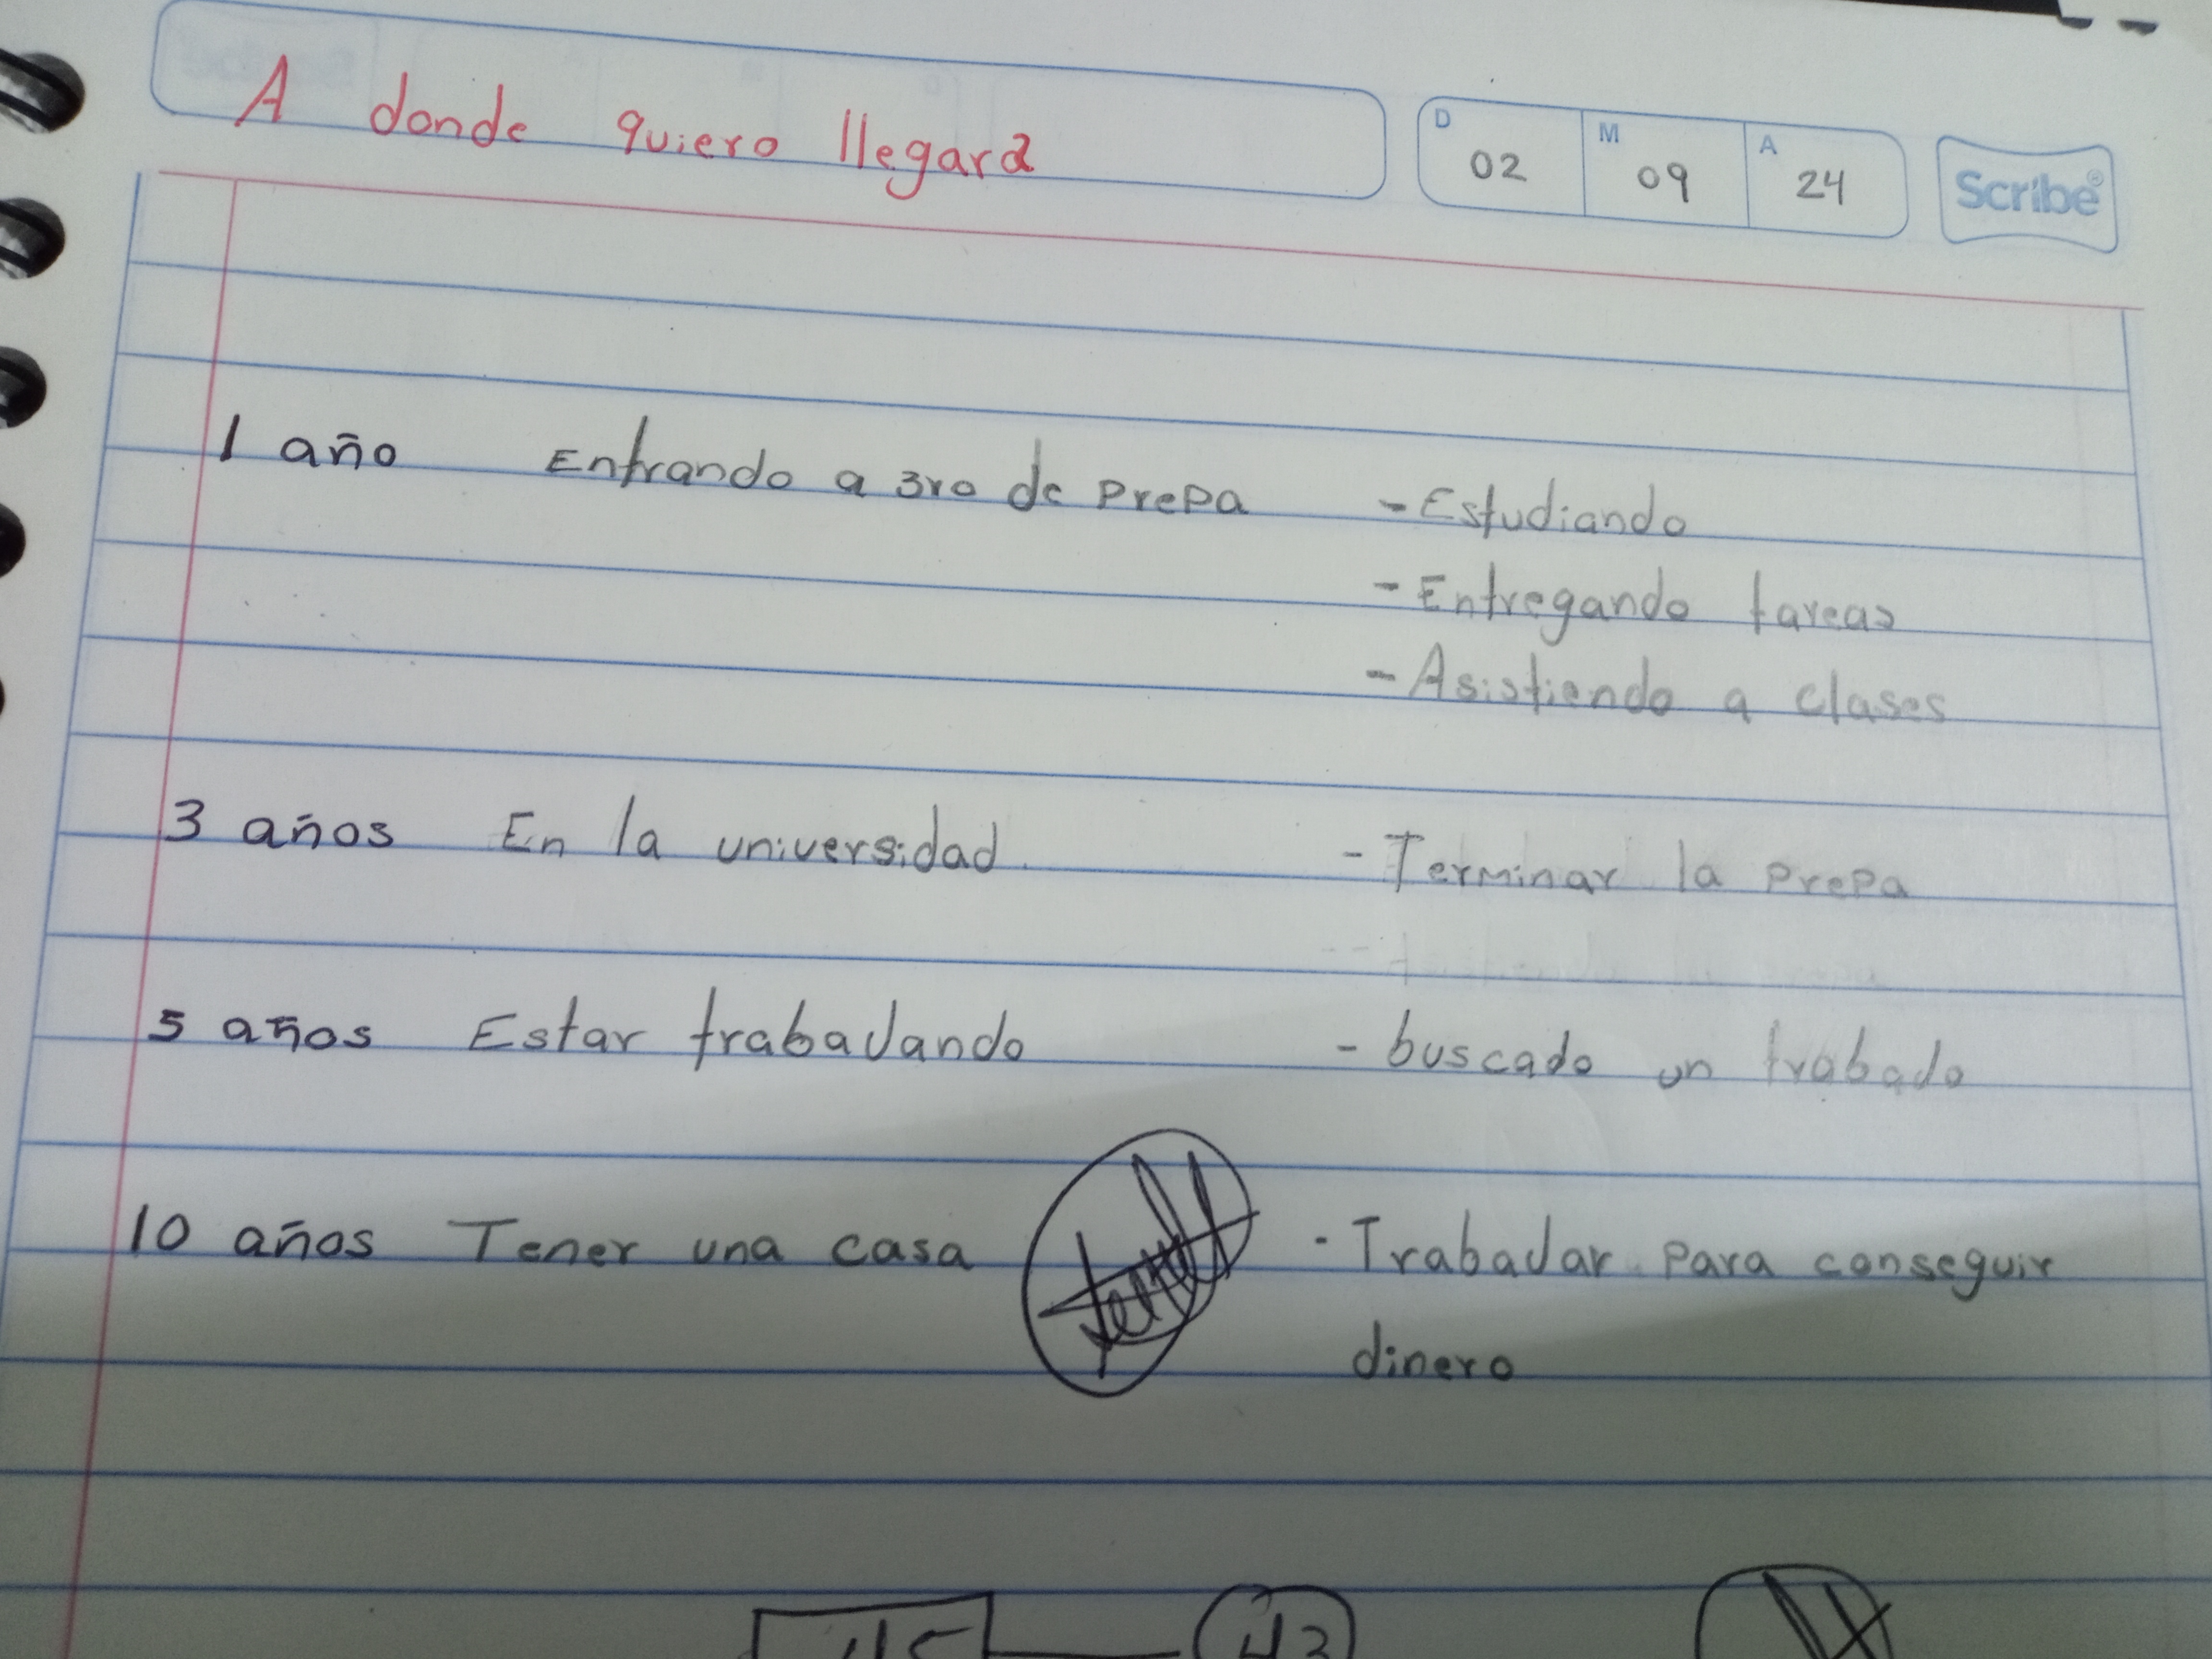 A donde quiero llegara
D 02 M 09 A 24
Scribe®
1 año Entrando a 3ro de prepa - Estudiando
- Entregando tareas
- Asistiendo a clases
3 años En la universidad - Terminar la prepa
5 años Estar trabaJando - buscado un trabado
10 años Tener una casa - TrabaJar para conseguir
dinero